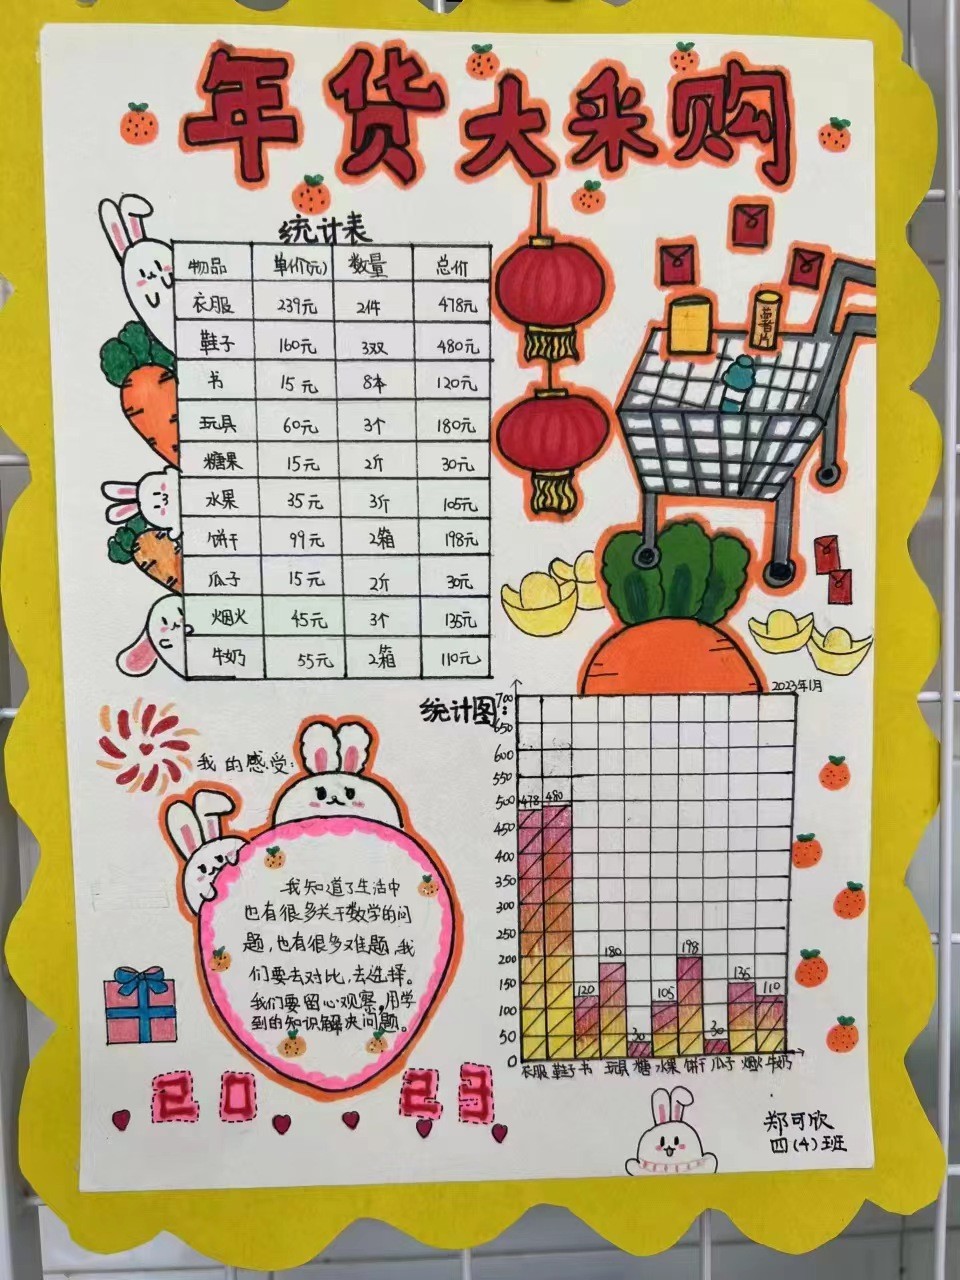 年货大采购
统计表
物品 单价(元) 数量 总价
衣服 239元 2件 478元
鞋子 160元 3双 480元
书 15元 8本 120元
玩具 60元 3个 180元
糖果 15元 2斤 30元
水果 35元 3斤 105元
饼干 99元 2箱 198元
瓜子 15元 2斤 30元
烟火 45元 3个 135元
牛奶 55元 2箱 110元
薯片
统计图:
2023年1月
700
650
600
550
500
450
400
350
300
250
200
150
100
50
0
478 480 120 180 30 105 198 30 135 110
衣服 鞋子 书 玩具 糖 水果 饼干 瓜子 烟火 牛奶
我的感受:
我知道了生活中
也有很多关于数学的问
题,也有很多难题,我
们要去对比,去选择。
我们要留心观察,用学
到的知识解决问题。
2023
郑可欣
四(4)班